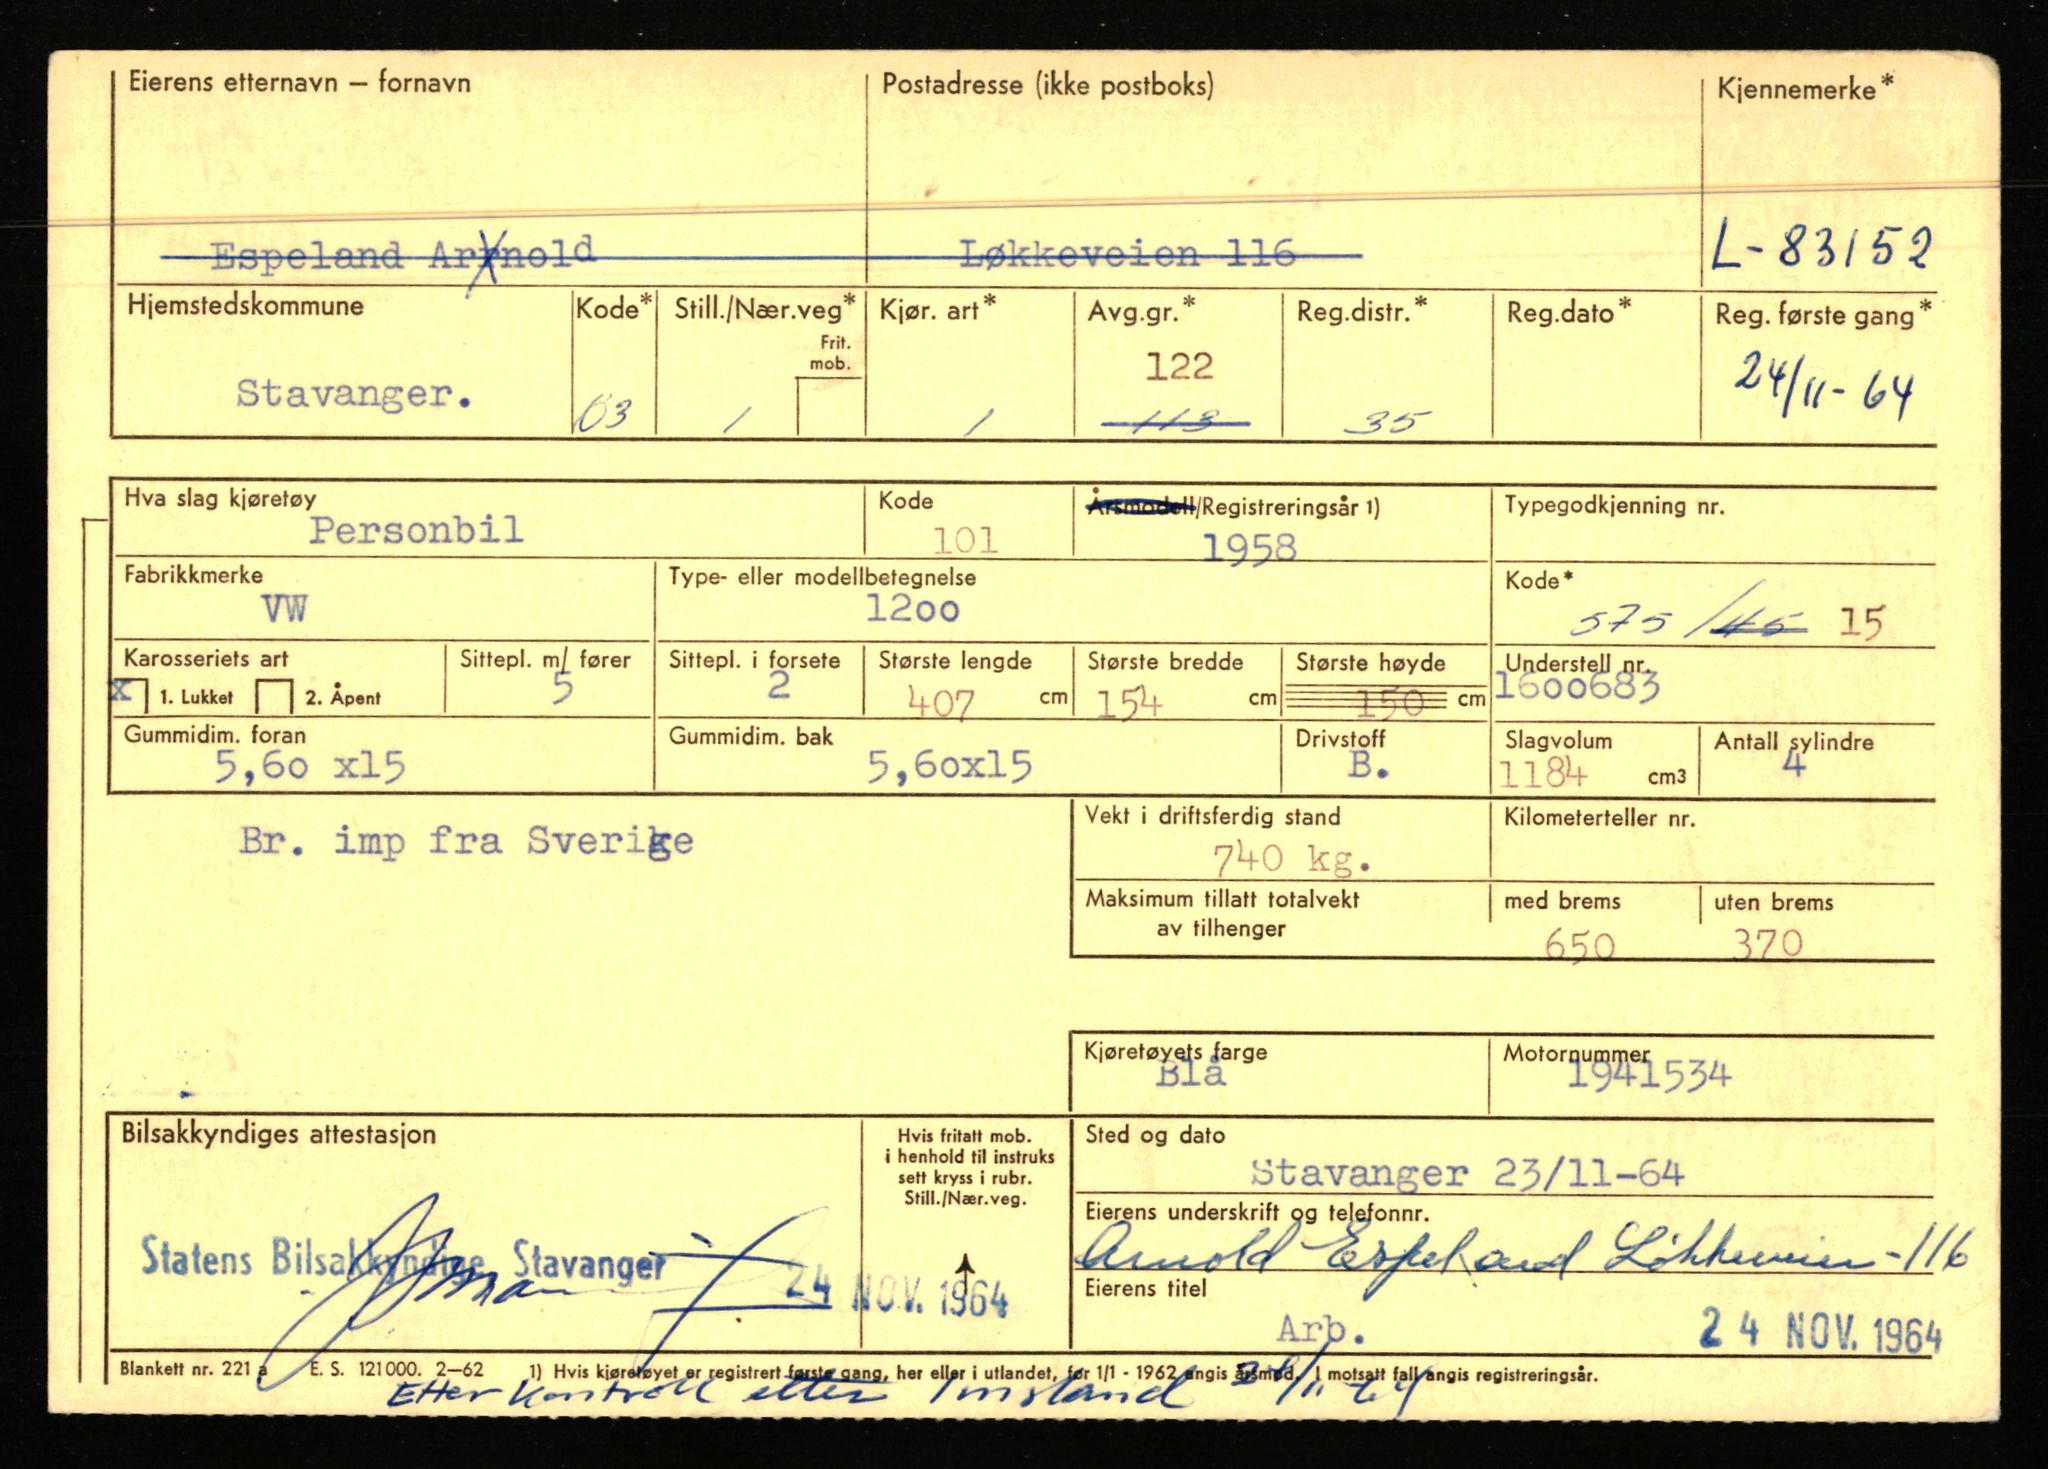 Eierens etternavn – fornavn Postadresse (ikke postboks) Kjennemerke*
Espeland Arnold Løkkeveien 116 L-83152
Hjemstedskommune Kode* Still./Nær.veg* Kjør. art* Avg.gr.* Reg.distr.* Reg.dato* Reg. første gang*
Frit.
mob.
122 24/11-64
Stavanger. 03 1 1 113 35
Hva slag kjøretøy Kode Årsmodell/Registreringsår 1) Typegodkjenning nr.
Personbil 101 1958
Fabrikkmerke Type- eller modellbetegnelse Kode*
VW 12oo 575 /45 15
Karosseriets art Sittepl. m/ fører Sittepl. i forsete Største lengde Største bredde Største høyde Understell nr.
x 1. Lukket 2. Åpent 5 2 407 cm 154 cm 150 cm 16oo683
Gummidim. foran Gummidim. bak Drivstoff Slagvolum Antall sylindre
5,6o x15 5,6ox15 B. 1184 cm3 4
Br. imp fra Sverike
Vekt i driftsferdig stand Kilometerteller nr.
740 kg.
Maksimum tillatt totalvekt med brems uten brems
av tilhenger
650 370
Kjøretøyets farge Motornummer
Blå 1941534
Bilsakkyndiges attestasjon
Hvis fritatt mob.
i henhold til instruks
sett kryss i rubr.
Still./Nær.veg.
Sted og dato
Stavanger 23/11-64
Eierens underskrift og telefonnr.
Arnold Espeland Løkkeveien-116
Statens Bilsakkyndige, Stavanger 24 NOV. 1964
Eierens titel
Arb. 24 NOV. 1964
Blankett nr. 221 a E. S. 121000. 2–62 1) Hvis kjøretøyet er registrert første gang, her eller i utlandet, før 1/1 - 1962 angis årsmod. I motsatt fall angis registreringsår.
Etter kontroll etter Innsland 24/11-64